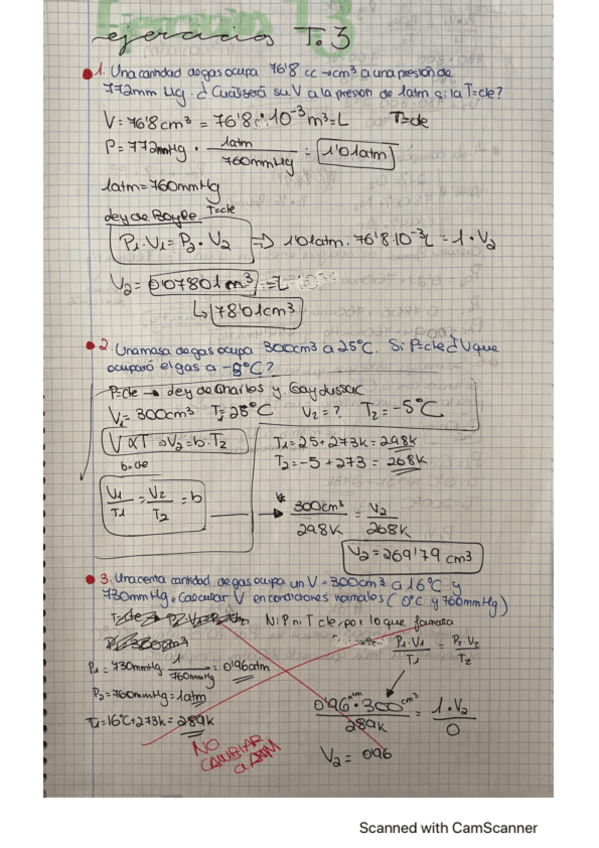 ejercicios T.3
1. Una cantidad de gas ocupa 76'8 cc → cm³ a una presión de
772mm Hg. ¿Cuál será su V a la presión de 1atm si la T=cte?
V = 76'8 cm³ = 76'8 · 10⁻³ m³ = L T=cte
P = 772mmHg · 1atm / 760mmHg = 1'01atm
1atm = 760mmHg
Ley de Boyle T=cte
P₁·V₁ = P₂·V₂ => 1'01atm · 76'8·10⁻³L = 1·V₂
V₂ = 0'07801m³ = L
↳ 78'01cm³
2. Una masa de gas ocupa 300cm³ a 25°C. Si P=cte ¿V que
ocupará el gas a -5°C?
P=cte → Ley de Charles y Gay dussac
V₁ = 300cm³ T₁ = 25°C V₂ = ? T₂ = -5°C
V∝T => V₂ = b·T₂
b=cte
T₁ = 25+273k = 298k
T₂ = -5+273 = 268k
V₁/T₁ = V₂/T₂ = b
300cm³/298k = V₂/268k
V₂ = 269'79 cm³
3. Una centa cantidad de gas ocupa un V = 300cm³ a 16°C y
730mmHg. Calcular V en condiciones normales (0°C y 760mmHg)
Ni P ni T cte, por lo que
P₁·V₁/T₁ = P₂·V₂/T₂
P₁ = 730mmHg · 1/760mmHg = 0'96atm
P₂ = 760mmHg = 1atm
T₁ = 16°C+273k = 289k
0'96atm · 300cm³ / 289k = 1·V₂ / 0
V₂ = 096
NO
CAMBIAR
a ATM
Scanned with CamScanner